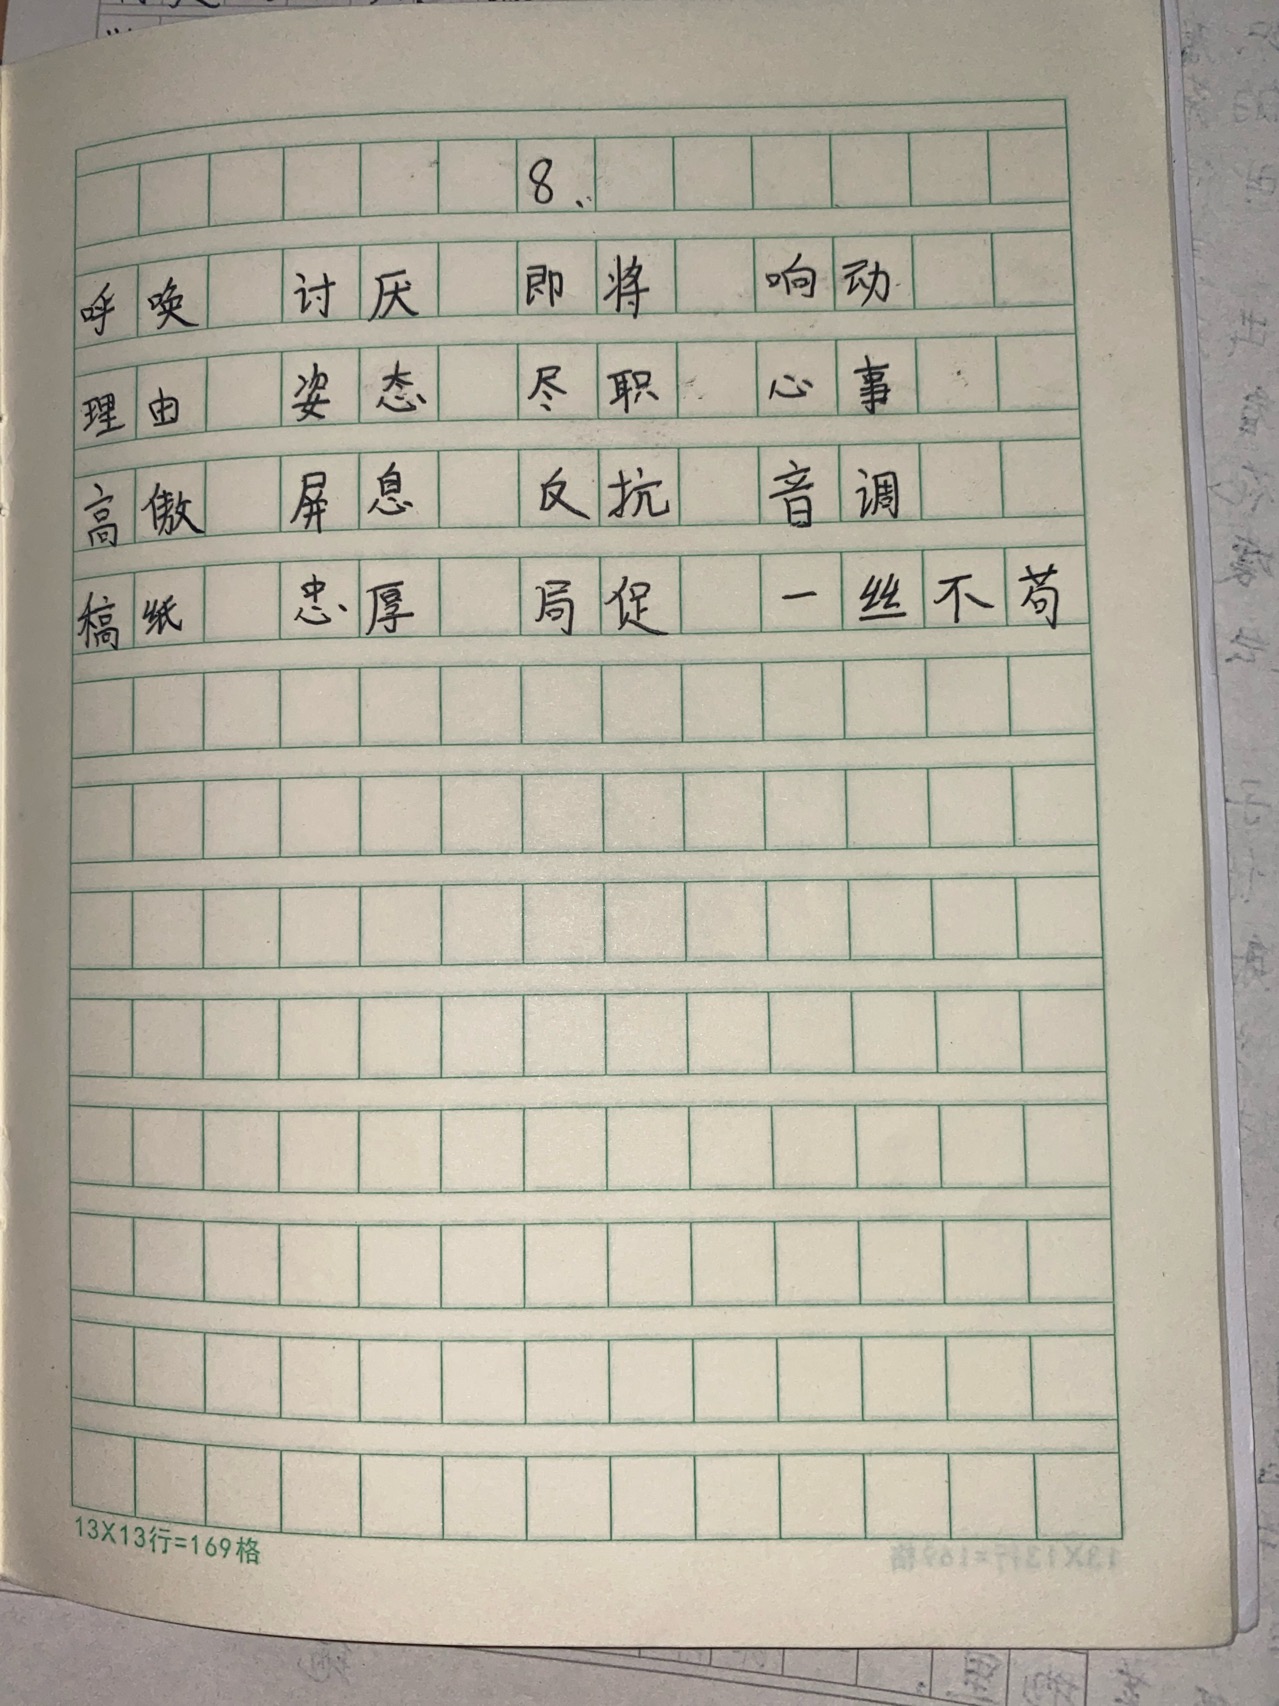 8、
呼唤 讨厌 即将 响动
理由 姿态 尽职 心事
高傲 屏息 反抗 音调
稿纸 忠厚 局促 一丝不苟
13X13行=169格